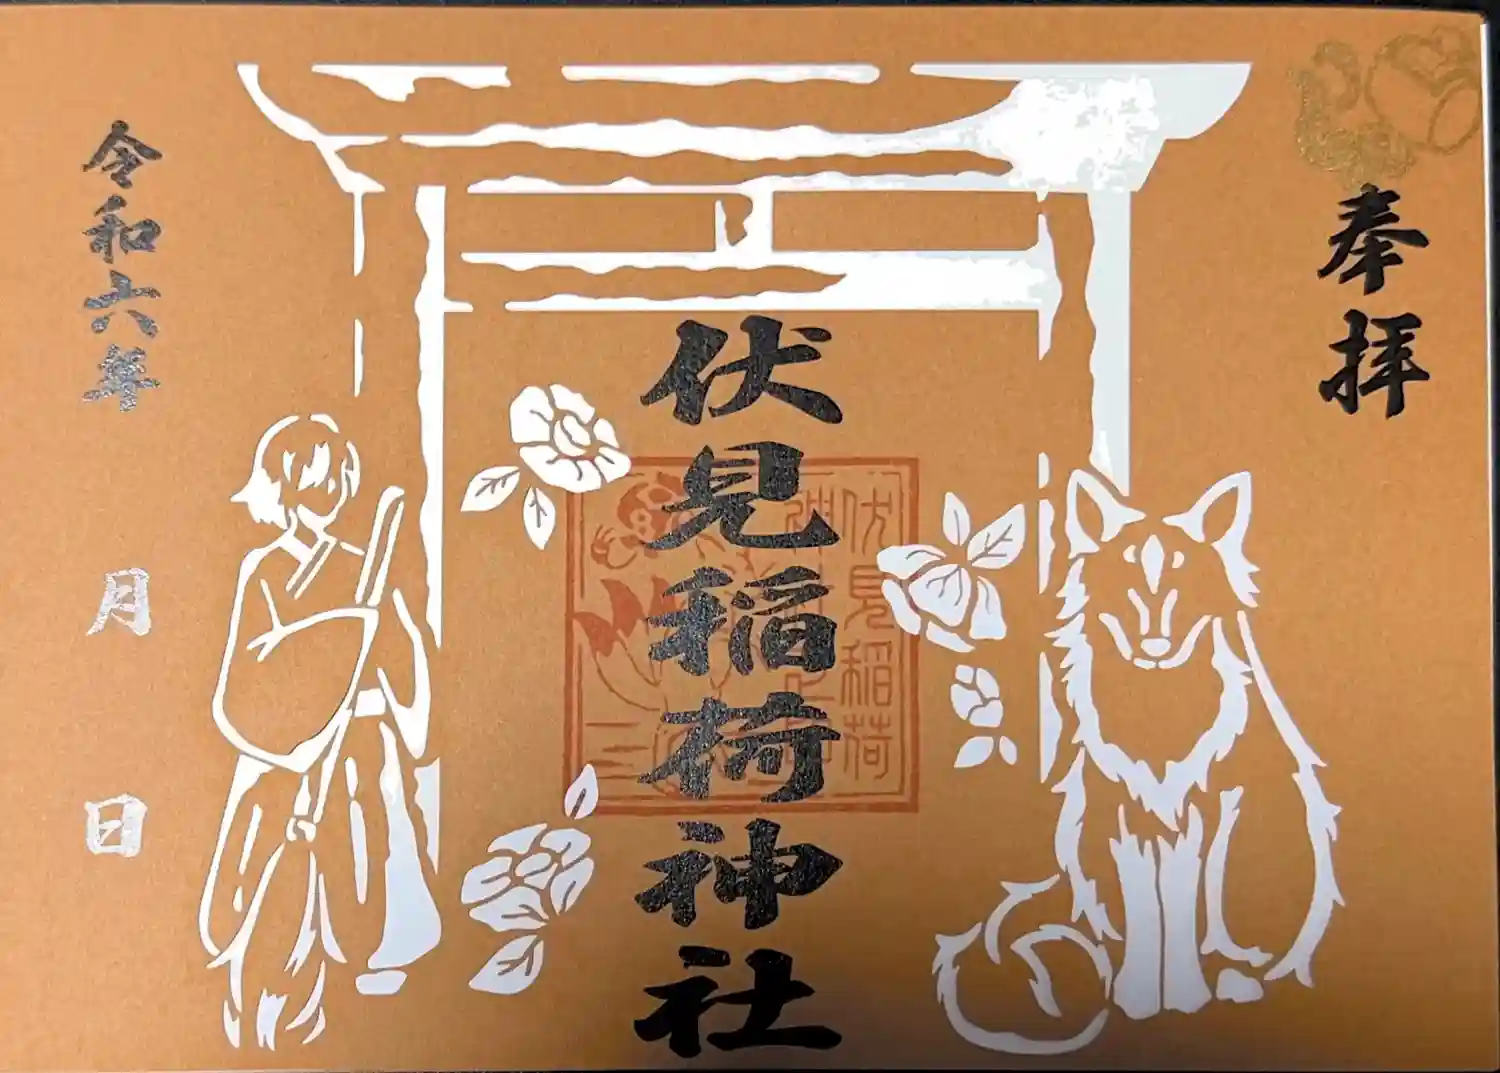 奉拝
伏見稲荷神社
伏見稲荷
令和六年 月 日